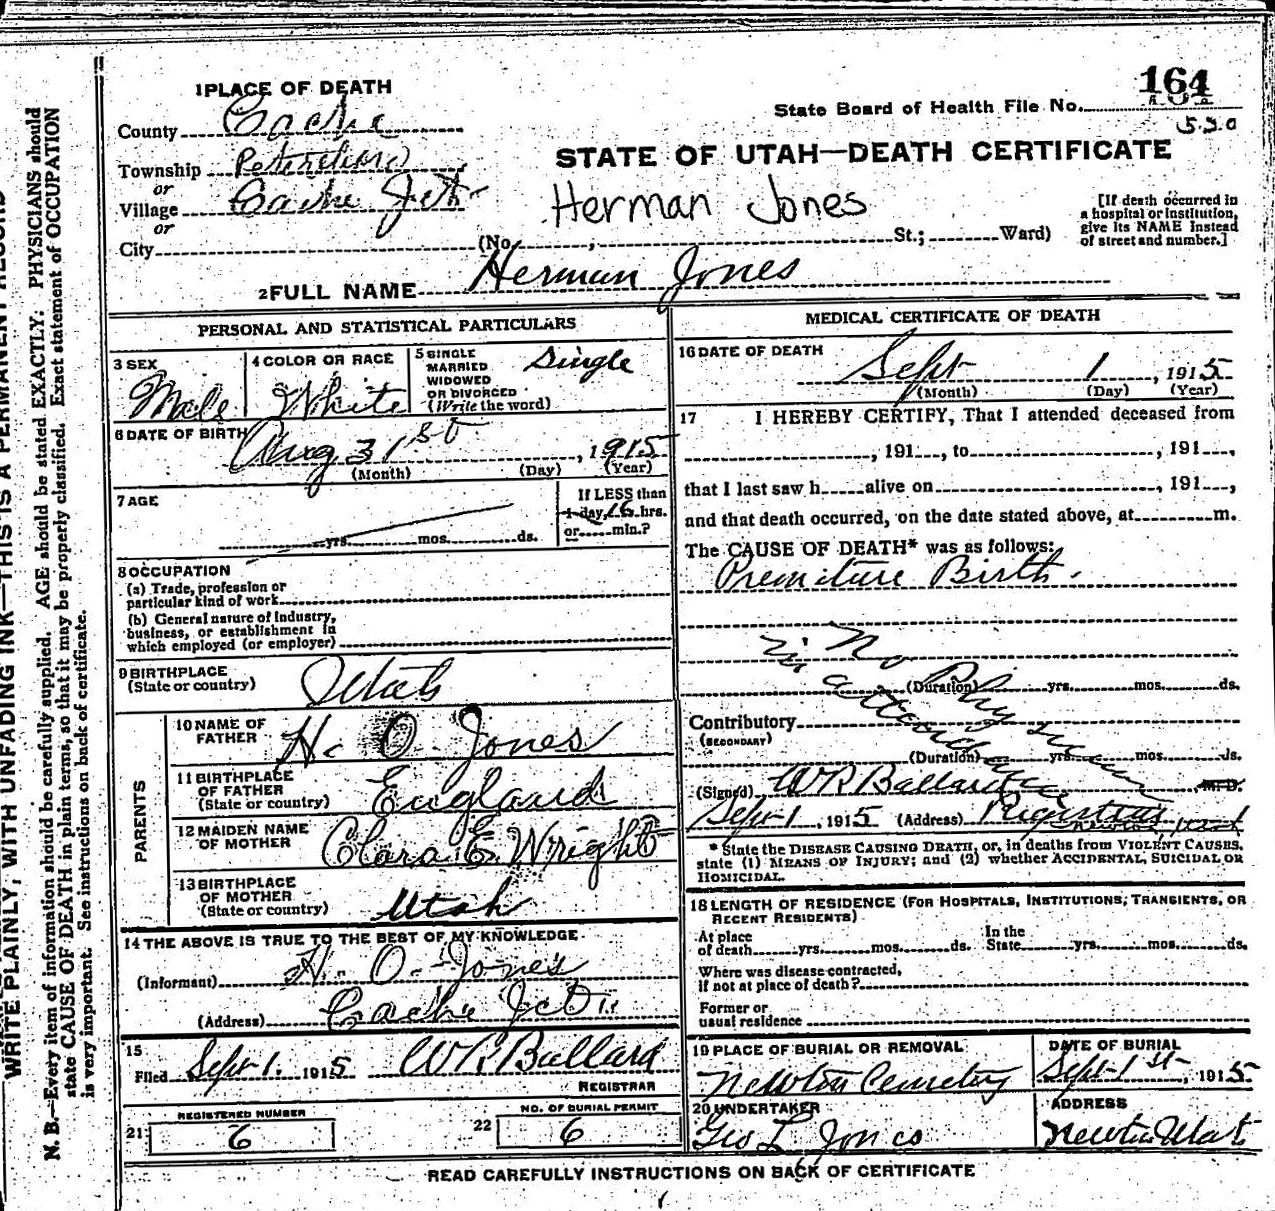 1 PLACE OF DEATH
164
State Board of Health File No.
County Cache
Township
or
Village Cache Jct
or
City
STATE OF UTAH—DEATH CERTIFICATE
Herman Jones
(No. , St.; Ward)
[If death occurred in
a hospital or institution,
give its NAME instead
of street and number.]
2 FULL NAME Herman Jones
PERSONAL AND STATISTICAL PARTICULARS
3 SEX
Male
4 COLOR OR RACE
White
5 SINGLE
MARRIED
WIDOWED
OR DIVORCED
(Write the word)
Single
6 DATE OF BIRTH
Aug 31st, 1915
(Month) (Day) (Year)
7 AGE
yrs. mos. ds.
If LESS than
1 day, 16 hrs.
or min.?
8 OCCUPATION
(a) Trade, profession or
particular kind of work
(b) General nature of Industry,
business, or establishment in
which employed (or employer)
9 BIRTHPLACE
(State or country)
Utah
PARENTS
10 NAME OF
FATHER
H. O. Jones
11 BIRTHPLACE
OF FATHER
(State or country)
England
12 MAIDEN NAME
OF MOTHER
Clara E. Wright
13 BIRTHPLACE
OF MOTHER
(State or country)
Utah
14 THE ABOVE IS TRUE TO THE BEST OF MY KNOWLEDGE
(Informant) H. O. Jones
(Address) Cache Jct.
15
Filed Sept 1. 1915 W P Ballard
REGISTRAR
REGISTERED NUMBER
21 6
NO. OF BURIAL PERMIT
22 6
MEDICAL CERTIFICATE OF DEATH
16 DATE OF DEATH
Sept 1, 1915
(Month) (Day) (Year)
17 I HEREBY CERTIFY, That I attended deceased from
, 191 , to , 191 ,
that I last saw h alive on , 191 ,
and that death occurred, on the date stated above, at m.
The CAUSE OF DEATH* was as follows:
Premiture Birth.
No Physician
in attendance
(Duration) yrs. mos. ds.
Contributory
(SECONDARY)
(Duration) yrs. mos. ds.
(Signed) W P Ballard M.D.
Sept 1, 1915 (Address) Registrar
Newton, Utah
* State the DISEASE CAUSING DEATH, or, in deaths from VIOLENT CAUSES,
state (1) MEANS OF INJURY; and (2) whether ACCIDENTAL, SUICIDAL OR
HOMICIDAL.
18 LENGTH OF RESIDENCE (FOR HOSPITALS, INSTITUTIONS, TRANSIENTS, OR
RECENT RESIDENTS)
At place
of death yrs. mos. ds.
In the
State yrs. mos. ds.
Where was disease contracted,
if not at place of death?
Former or
usual residence
19 PLACE OF BURIAL OR REMOVAL
Newton Cemetery
DATE OF BURIAL
Sept 1st, 1915
20 UNDERTAKER
Geo L Jones
ADDRESS
Newton Utah
READ CAREFULLY INSTRUCTIONS ON BACK OF CERTIFICATE
WRITE PLAINLY, WITH UNFADING INK—THIS IS A PERMANENT RECORD
N. B.—Every item of information should be carefully supplied. AGE should be stated EXACTLY. PHYSICIANS should
state CAUSE OF DEATH in plain terms, so that it may be properly classified. Exact statement of OCCUPATION
is very important. See instructions on back of certificate.